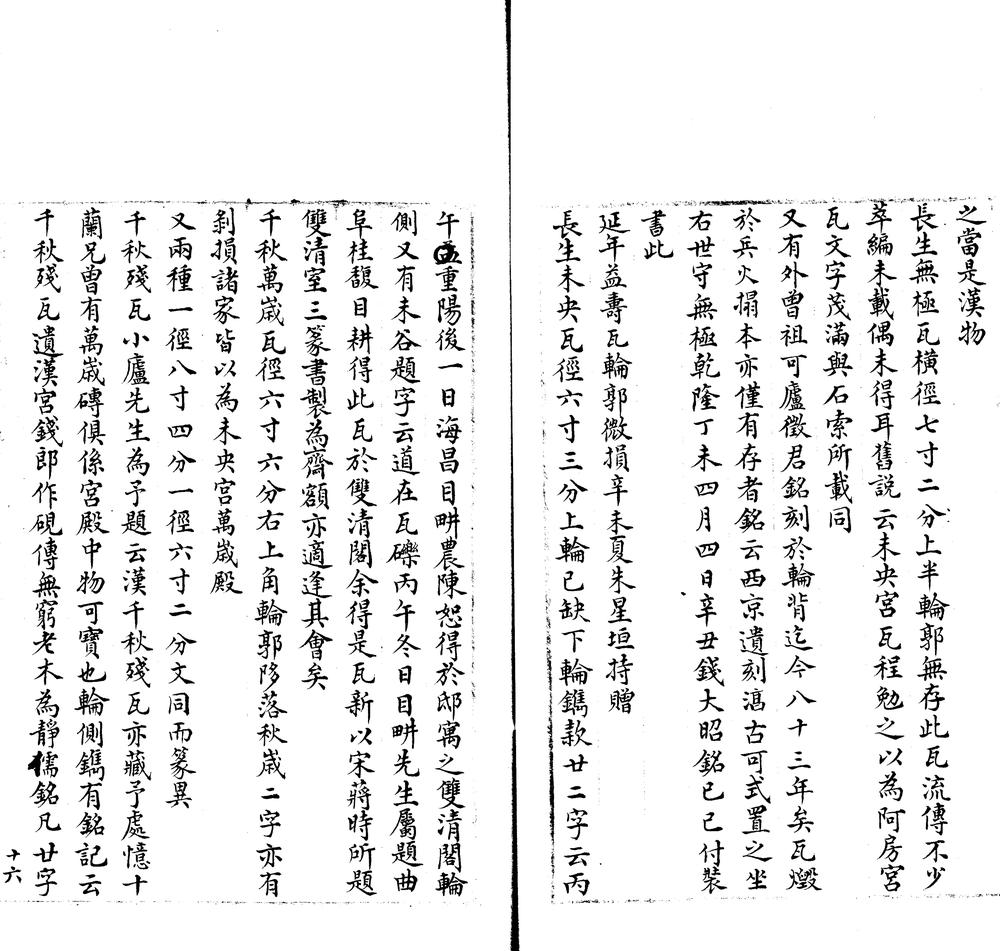 之當是漢物
長生無極瓦橫徑七寸二分上半輪郭無存此瓦流傳不少
萃編未載偶未得耳舊說云未央宮瓦程勉之以為阿房宮
瓦文字茂滿與石索所載同
又有外曾祖可廬徵君銘刻於輪背迄今八十三年矣瓦燬
於兵火搨本亦僅有存者銘云西京遺刻澹古可式置之坐
右世守無極乾隆丁未四月四日辛丑錢大昭銘已已付裝
書此
延年益壽瓦輪郭微損辛未夏朱星垣持贈
長生未央瓦徑六寸三分上輪已缺下輪鐫款廿二字云丙
午孟重陽後一日海昌目畊農陳恕得於邸寓之雙清閣輪
側又有未谷題字云道在瓦礫丙午冬日目畊先生屬題曲
阜桂馥目耕得此瓦於雙清閣余得是瓦新以宋蔣時所題
雙清室三篆書製為齋額亦適逢其會矣
千秋萬歲瓦徑六寸六分右上角輪郭陊落秋歲二字亦有
剝損諸家皆以為未央宮萬歲殿
又兩種一徑八寸四分一徑六寸二分文同而篆異
千秋殘瓦小廬先生為予題云漢千秋殘瓦亦藏予處憶十
蘭兄曾有萬歲磚俱係宮殿中物可寶也輪側鐫有銘記云
千秋殘瓦遺漢宮錢郎作硯傳無窮老木為靜儒銘凡廿字
十六